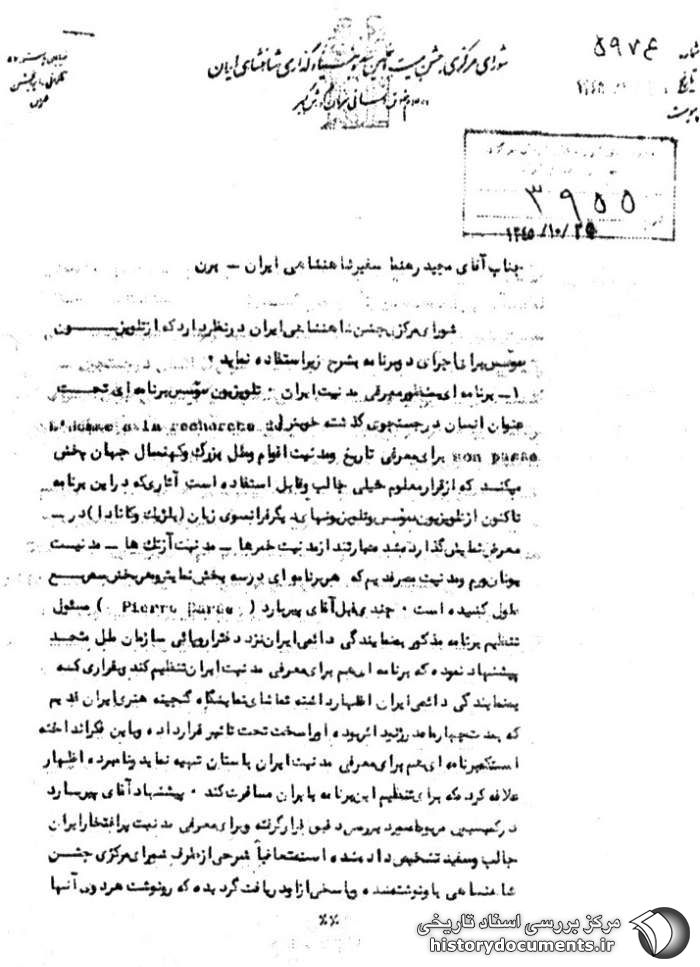 شماره ۵۹۷۴
تاریخ
پیوست
شورای مرکزی جشن بنیادگذاری شاهنشاهی ایران
۳۹۵۵
۱۳۴۵/۱۰/۲۵
جناب آقای مجید رهنما سفیر شاهنشاهی ایران – برن
شورای مرکزی جشن شاهنشاهی ایران در نظر دارد که از تلویزیون
سوئیس برای اجرای دو برنامه بشرح زیر استفاده نماید :
۱– برنامه ای بمنظور معرفی مدنیت ایران . تلویزیون سوئیس برنامه ای تحت
عنوان انسان در جستجوی گذشته خویش ( L'homme à la recherche de
son passé برای معرفی تاریخ ومدنیت اقوام وملل بزرگ وکهنسال جهان پخش
میکند که از قرار معلوم خیلی جالب وقابل استفاده است آثاری که در این برنامه
تاکنون از تلویزیون سوئیس وتلویزیونهای دیگر فرانسوی زبان (بلژیک وکانادا) در –
معرض نمایش گذارده شد عبارتند از مدنیت خمرها – مدنیت آزتک ها – مدنیت
یونان ورم ومدنیت مصر قدیم که هر برنامه ای در سه بخش نمایش وهر بخش سه ربع
طول کشیده است . چندی قبل آقای پیر بارد ( Pierre Barde ) مسئول
تنظیم برنامه مذکور بنمایندگی دائمی ایران نزد دفتر اروپائی سازمان ملل متحد
پیشنهاد نموده که برنامه ای هم برای معرفی مدنیت ایران تنظیم کند وبقراری که
بنمایندگی دائمی ایران اظهار داشته تماشای نمایشگاه گنجینه هنری ایران قدیم
که بمدت چهار ماه در ژنو دائر بوده اورا سخت تحت تاثیر قرار داده وباین فکر انداخته
است که برنامه ای هم برای معرفی مدنیت ایران باستان تهیه نماید ونامبرده اظهار
علاقه کرد که برای تنظیم این برنامه بایران مسافرت کند . پیشنهاد آقای پیر بارد
در کمیسیون مربوط مورد بررسی دقیق قرار گرفته وبرای معرفی مدنیت پرافتخار ایران
جالب ومفید تشخیص داده شده است متعاقباً شرحی از طرف شورای مرکزی جشن
شاهنشاهی باو نوشته شده وپاسخی از او دریافت گردیده که رونوشت هر دوی آنها
٪٪
مرکز بررسی اسناد تاریخی
historydocuments.ir